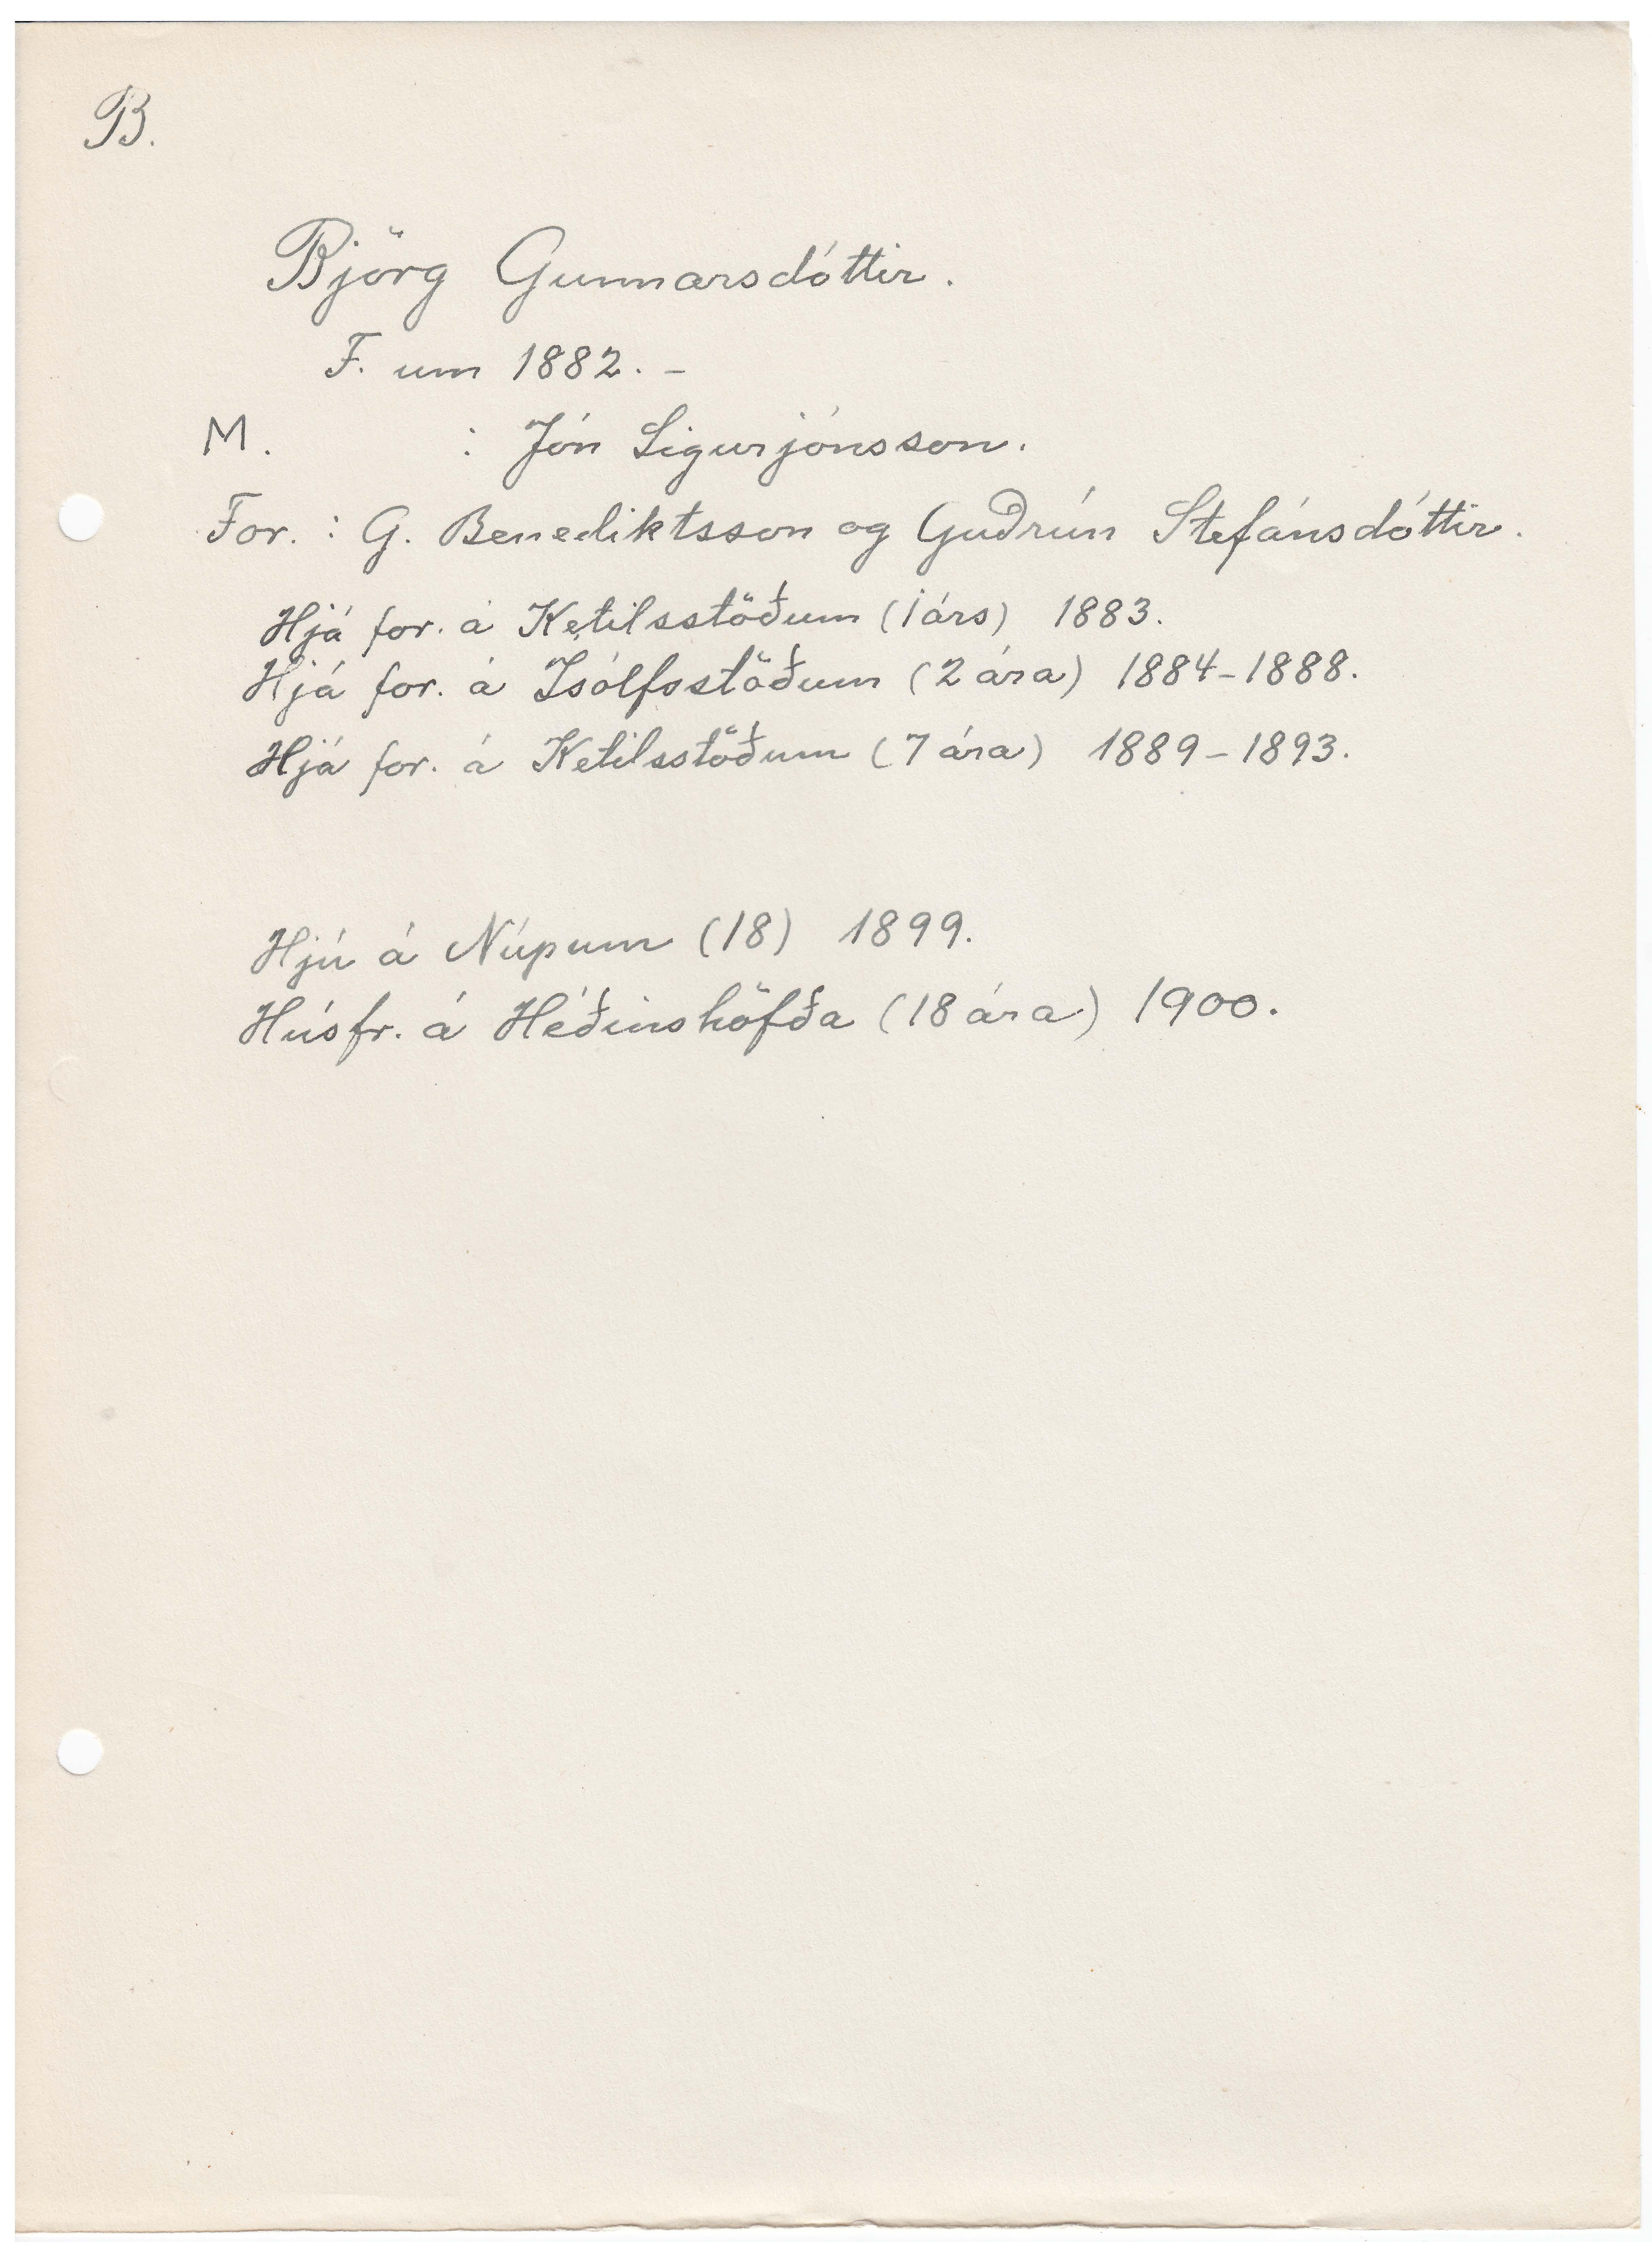 B.
Björg Gunnarsdóttir.
F. um 1882. -
M. : Jón Sigurjónsson.
For. : G. Benediktsson og Guðrún Stefánsdóttir.
Hjá for. á Ketilsstöðum (1 árs) 1883.
Hjá for. á Ísólfsstöðum (2 ára) 1884-1888.
Hjá for. á Ketilsstöðum (7 ára) 1889-1893.
Hjú á Núpum (18) 1899.
Húsfr. á Héðinshöfða (18 ára) 1900.